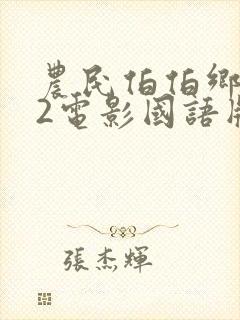 農民伯伯鄉
2電影國語版
張杰輝